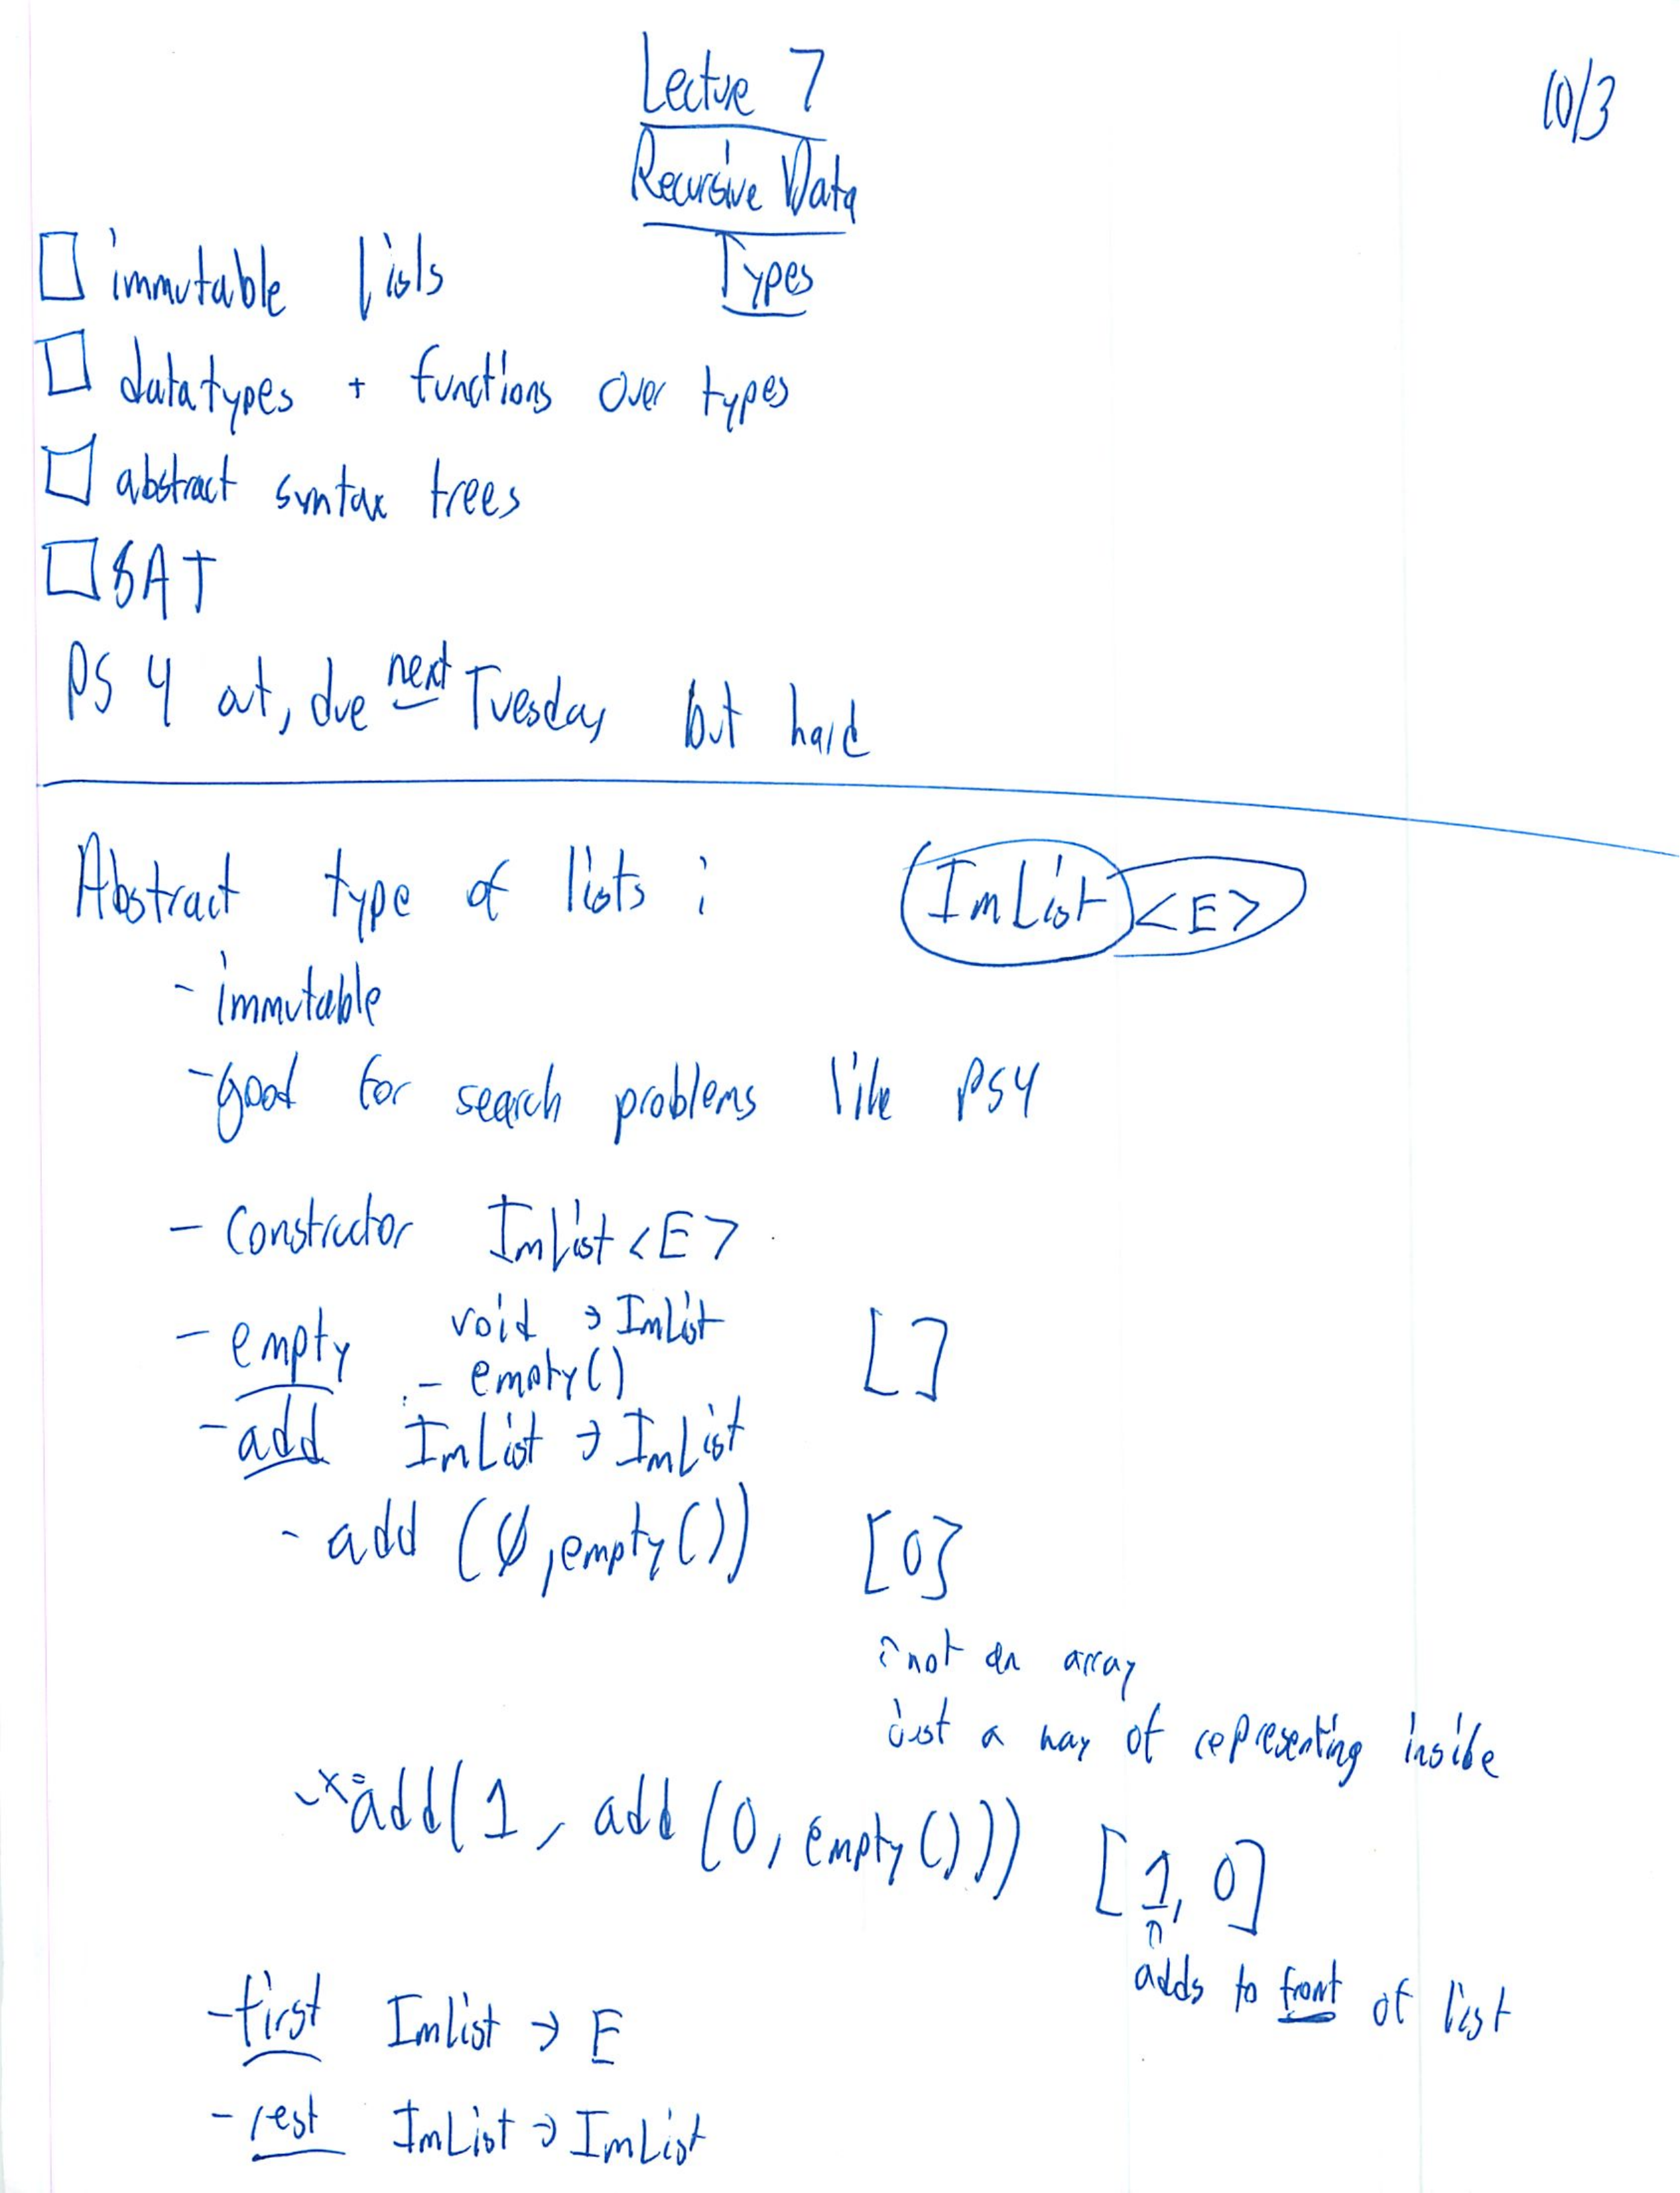 Lecture 7
10/3
Recursive Data
Types
□ immutable lists
□ datatypes + functions over types
□ abstract syntax trees
□ SAT
PS 4 out, due next Tuesday but hard
Abstract type of lists : ImList <E>
- immutable
- good for search problems like PS4
- Constructor ImList <E>
- empty void → ImList
- empty() []
- add ImList → ImList
- add (0, empty()) [0]
not an array
just a way of representing inside
x= add(1, add (0, empty())) [1, 0]
adds to front of list
- first ImList → E
- rest ImList → ImList